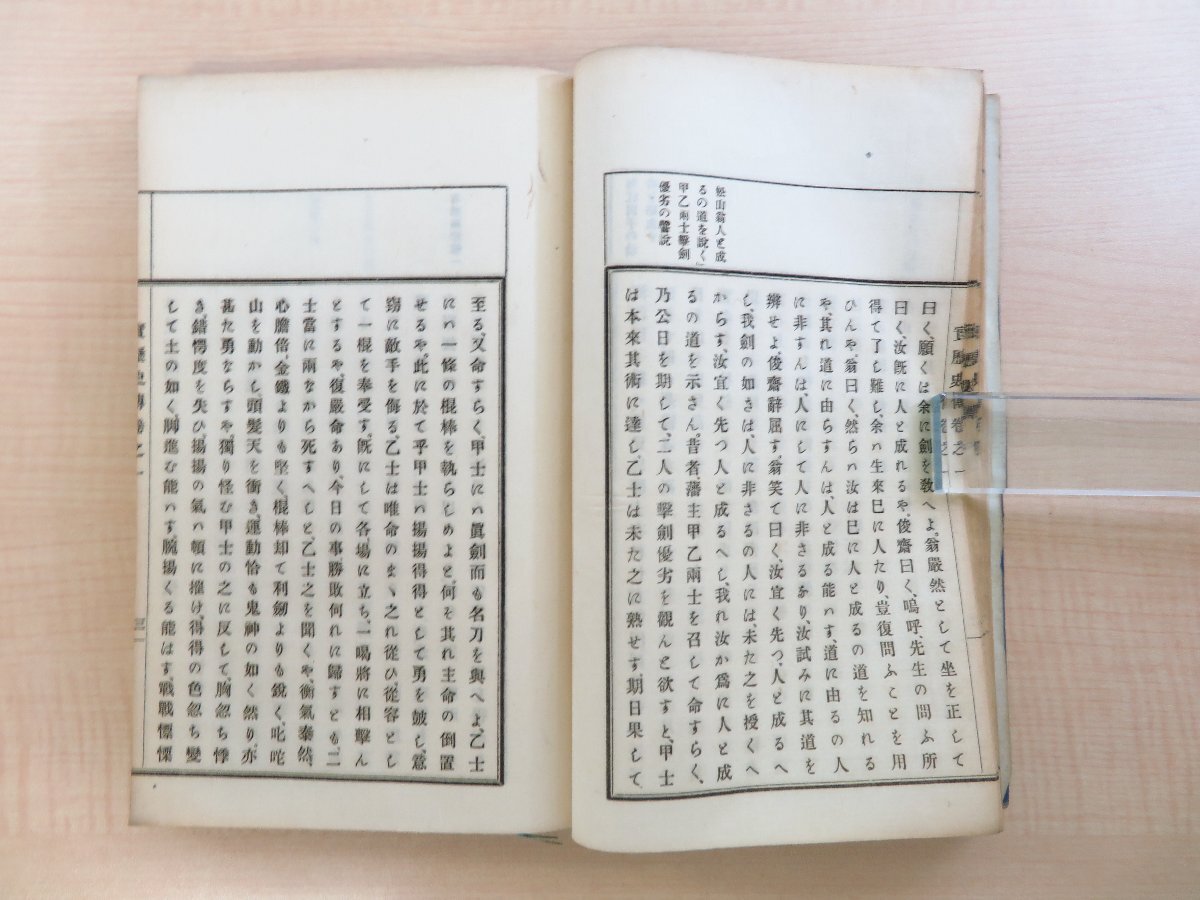 松山翁人と成
るの道を說く、
甲乙兩士擊劍
優劣の譬說
曰く、願くは余に劍を敎へよ、翁嚴然として坐を正して
曰く、汝旣に人と成れるや、俊齋曰く、嗚呼、先生の問ふ所
得て了し難し、余ハ生來巳に人たり、豈復問ふことを用
ひんや、翁曰く、然らハ汝は巳に人と成るの道を知れる
や、其れ道に由らすんは、人と成る能ハす、道に由るの人
に非すんは、人にして人に非さるなり、汝試みに其道を
辨せよ、俊齋辭屈す、翁笑て曰く、汝宜く先つ、人と成るへ
し、我劍の如きは、人に非さるの人には、未た之を授くへ
からす、汝宜く先つ人と成るへし、我れ汝か爲に人と成
るの道を示さん、昔者藩主甲乙兩士を召して命すらく、
乃公日を期して、二人の擊劍優劣を觀んと欲すと、甲士
は本來其術に達し、乙士は未た之に熟せす、期日果して
實歷史傳卷之一
至る、又命すらく、甲士にハ眞劍而も名刀を與へよ、乙士
にハ一條の棍棒を執らしめよと、何そ其れ主命の倒置
せるや、此に於て乎甲士ハ揚揚得得として勇を皷し、意
窃に敵手を侮る、乙士は唯命のまゝ之れ從ひ從容とし
て一棍を奉受す、旣にして各場に立ち、一喝將に相擊ん
とするや、復嚴命あり、今日の事勝敗何れに歸すとも、二
士當に兩なから死すへしと、乙士之を聞くや、衡氣泰然、
心膽倍金鐵よりも堅く、棍棒却て利劒よりも銳く、叱咤
山を動かし、頭髮天を衝き、運動恰も鬼神の如く然り、亦
甚た勇ならすや、獨り怪む甲士の之に反して、胸忽ち悸
き、錯愕度を失ひ、揚揚の氣ハ頓に摧け、得得の色忽ち變
して土の如く、脚進む能ハす、腕揚くる能はす、戰戰慄慄
實歷史傳卷之一
三